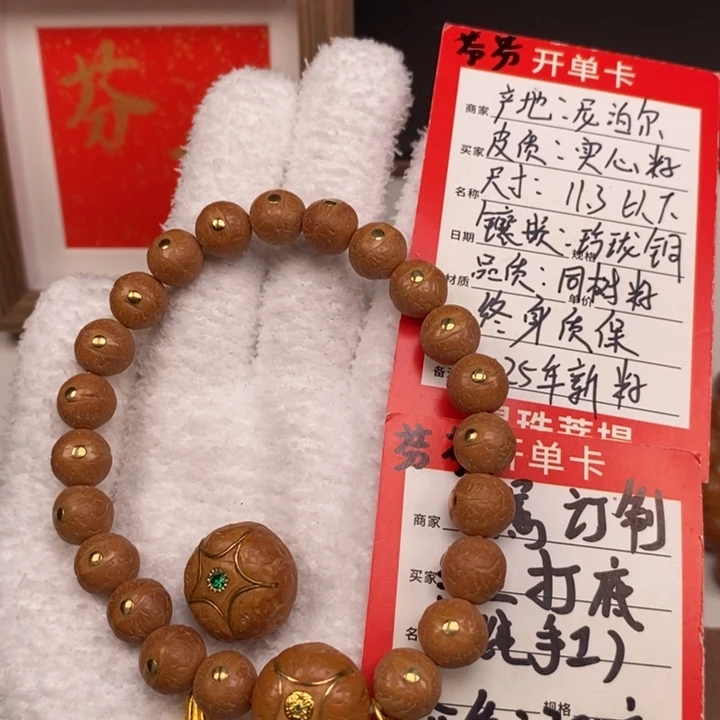 芬
芬芬 开单卡
商家 产地:尼泊尔
买家 皮质:实心籽
名称 尺寸:11.3以下
日期 镶嵌:玲珑铜
规格
材质 品质:同树籽
单价
终身质保
备注 25年新籽
星珠菩提
芬芬 开单卡
商家 订制
买家 打底
名 纯手工)
规格